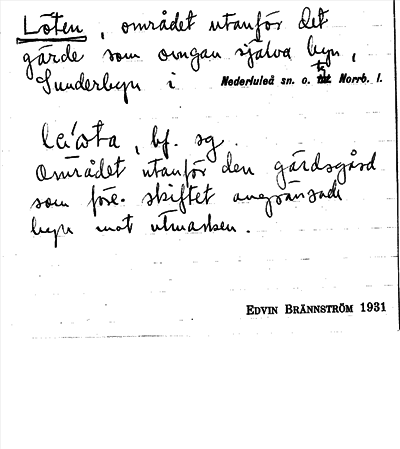 Löten, området utanför det
gärde som omgav själva byn,
Sunderbyn i Nederluleå sn. o. Norrb. l.
bf. sg
området utanför den gärdsgård
som före skiftet angränsade
byn mot utmarken.
EDVIN BRÄNNSTRÖM 1931